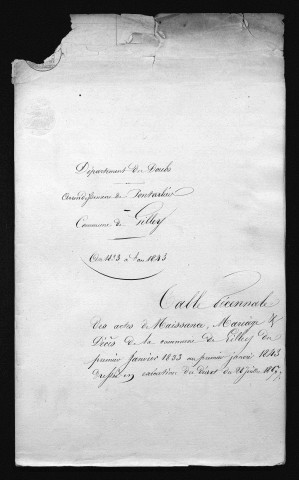 Département du Doubs
Arrondissement de Pontarlier
Commune de Gilley
An 1833 à l'an 1843
Table Décennale
Des actes de Naissance, Mariage &
Décès de la commune de Gilley du
premier Janvier 1833 au premier janvier 1843
Dressée en exécution du Décret du 20 juillet 1807